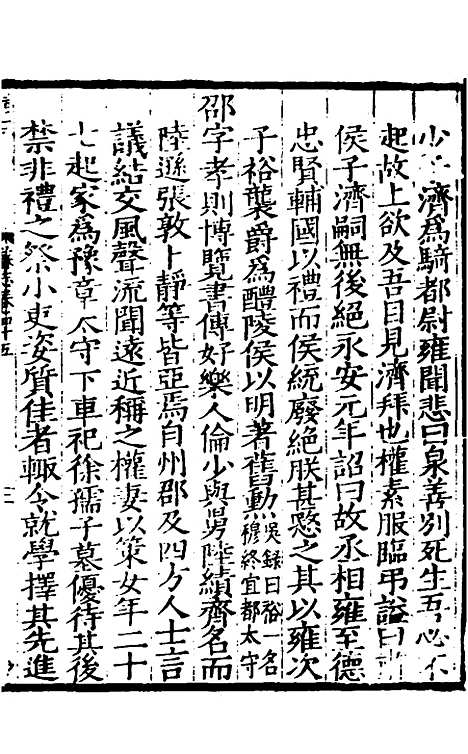 少子濟爲騎都尉雍聞悲曰泉善別死生吾必不
起故上欲及吾目見濟拜也權素服臨弔謚曰肅
侯子濟嗣無後絕永安元年詔曰故丞相雍至德
忠賢輔國以禮而侯統廢絕朕甚愍之其以雍次
子裕襲爵爲醴陵侯以明著舊勳吳錄曰裕一名穆終宜都太守
邵字孝則博覽書傳好樂人倫少與舅陸績齊名而
陸遜張敦卜靜等皆亞焉自州郡及四方人士言
議結交風聲流聞遠近稱之權妻以策女年二十
七起家爲豫章太守下車祀徐孺子墓優待其後
禁非禮之祭小吏姿質佳者輒令就學擇其先進